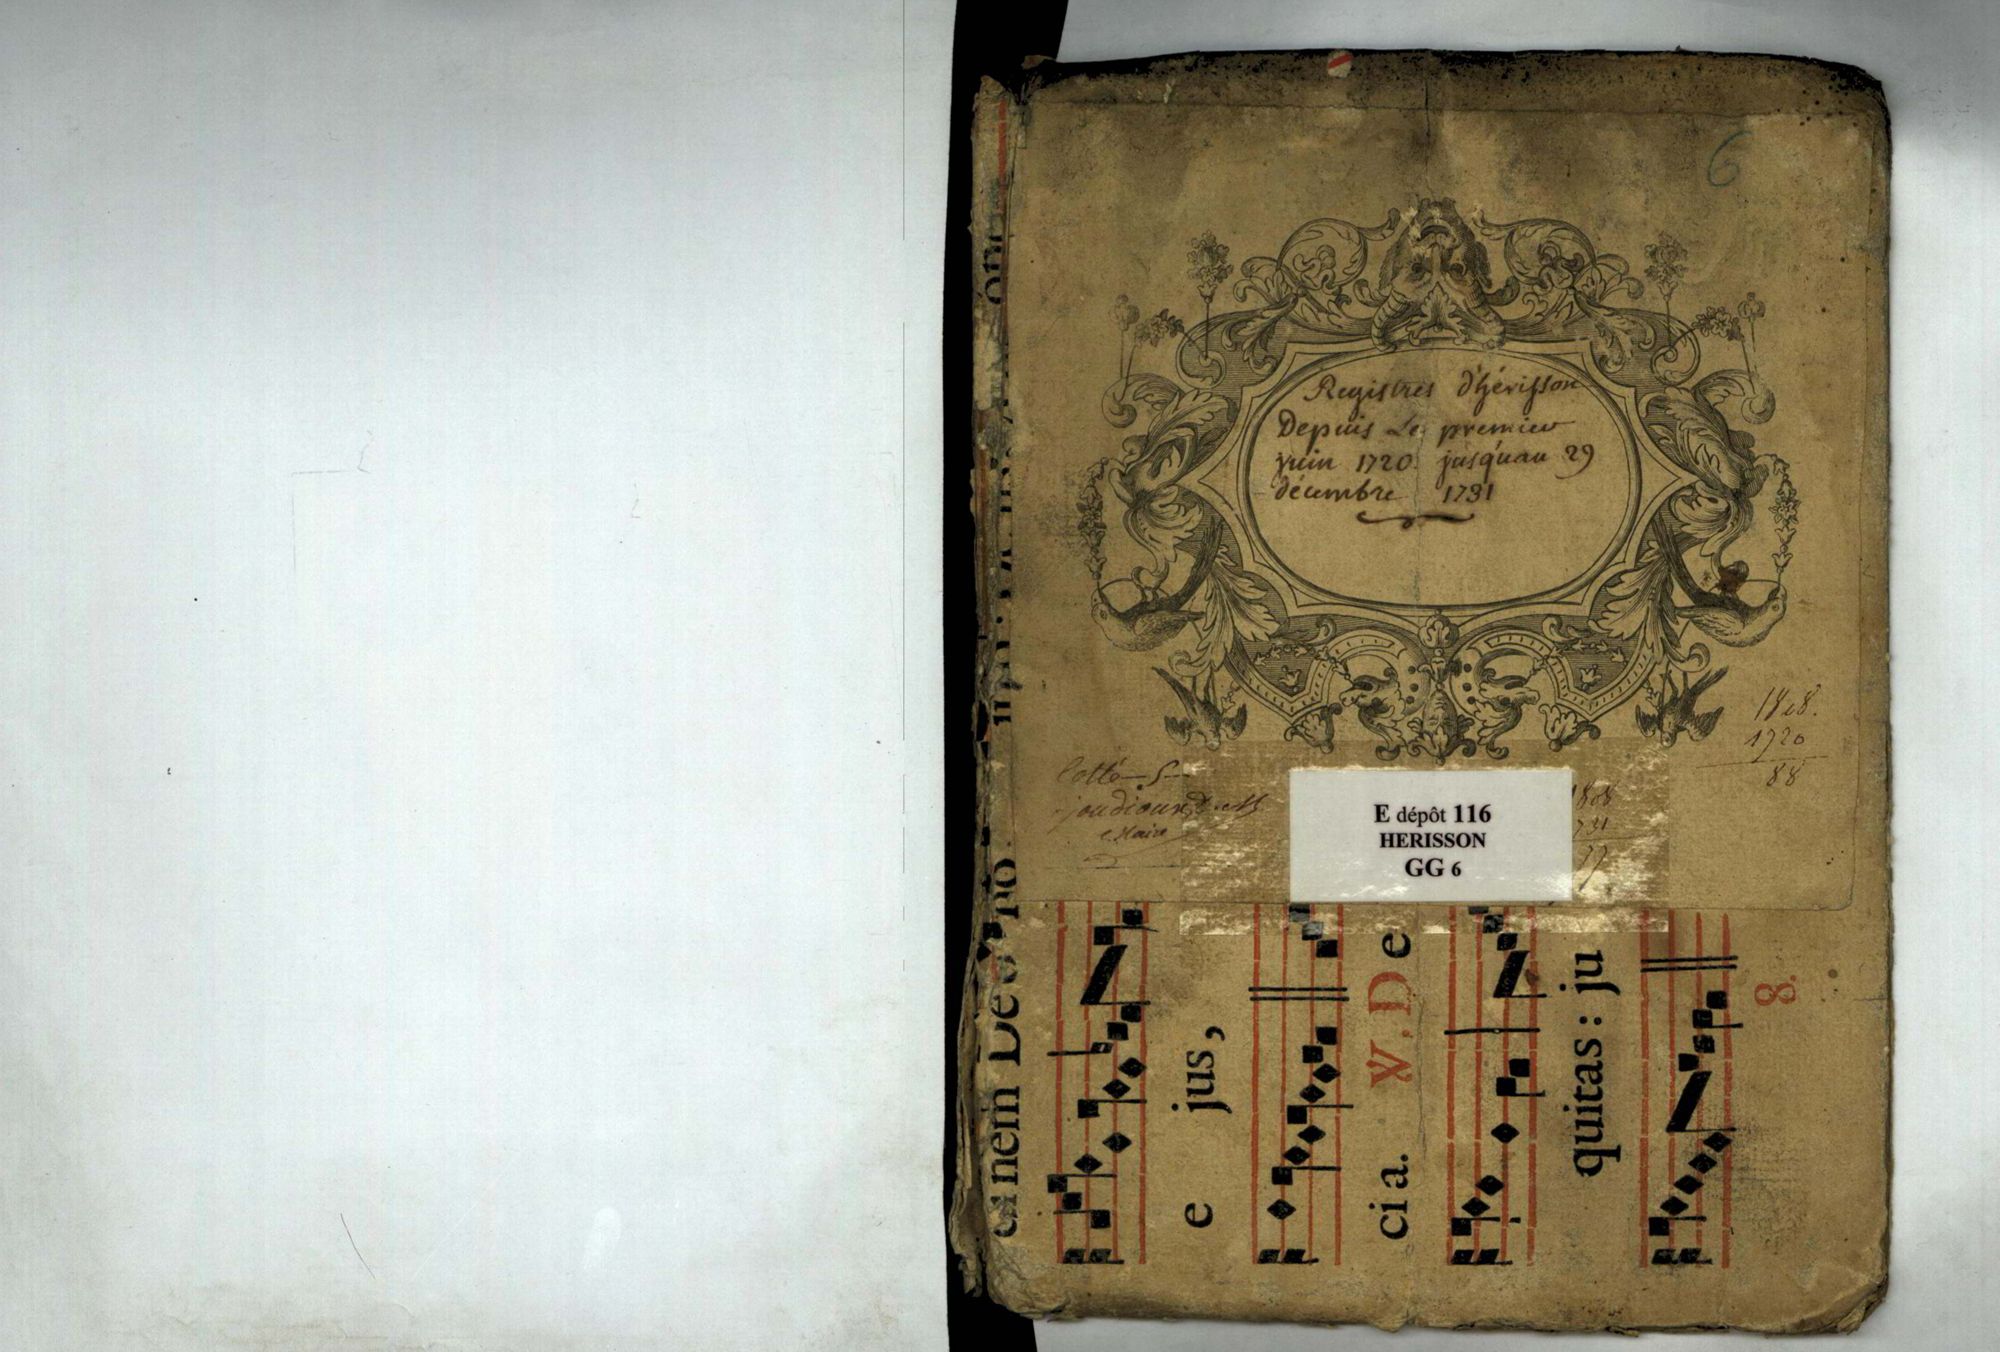 6
Registres d'hérisson
Depuis Le premier
juin 1720 jusquau 29
décembre 1731
1808.
1720
88
Cotté 5
Maire
1808
731
77
E dépôt 116
HERISSON
GG 6
e jus,
cia. V. De
quitas: ju
8.